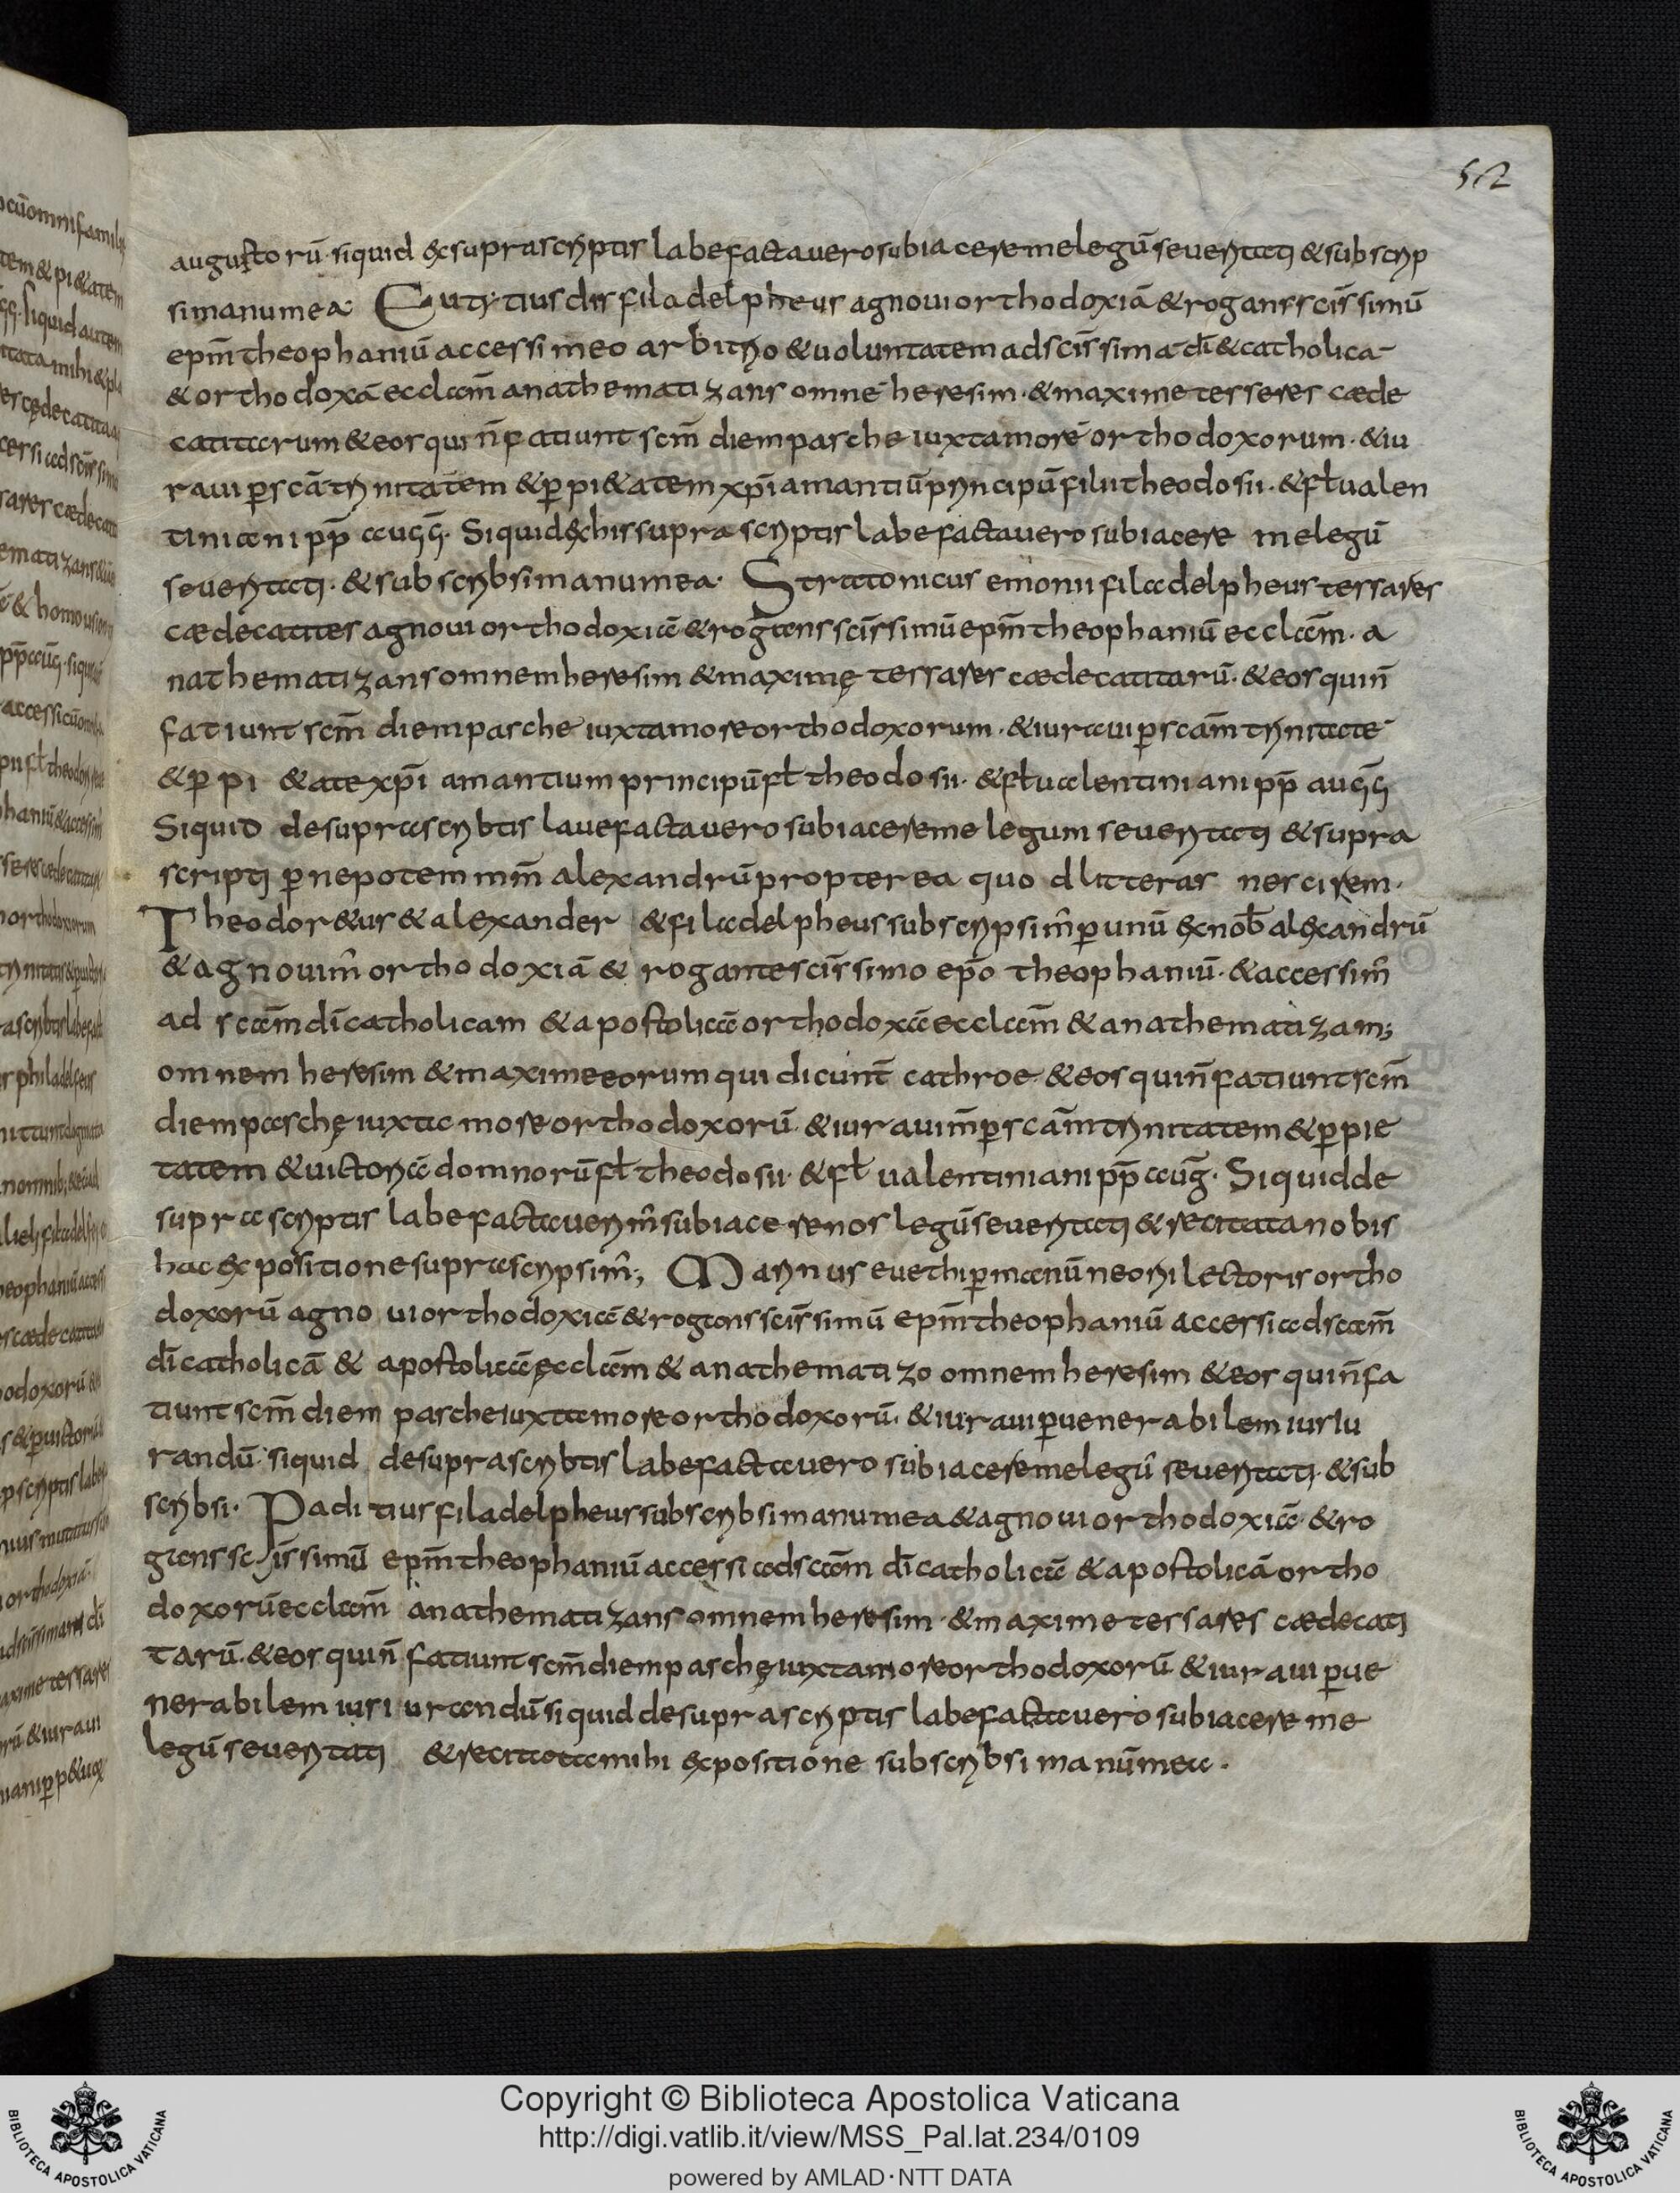 52
augustorū. siquid &suprascriptis labefactauero subiacere me legū seueritati & subscrip
si manu mea. Eutytius dis filadelpheus agnoui orthodoxiā & rogans scis̄simū
epm̄ theophaniū accessi meo arbitrio & uoluntatem ad scis̄simā dī & catholicā
& orthodoxā ecclam̄ anathematizans omnē heresim. & maxime tesseres cæde
catitarum & eos qui n̄ fatiunt scm̄ diem pasche iuxta morē orthodoxorum. & iu
raui p̱ scā trinitātem & p̱ pi&atem xp̄i amantiū principū filii theodosii. & fł ualen
tiniani pp̄ augḡ. Siquid ex his supra scriptis labefactauero subiacere me legū
seueritati. & subscribsi manu mea. Stratonicus emonii filadelpheus tessares
cædecatites agnoui orthodoxiā & rogans scis̄simū epm̄ theophaniū ecclam̄. a
nathematizans omnem heresim & maximę tessares cædecatitarū. & eos qui n̄
fatiunt scm̄ diem pasche iuxta more orthodoxorum. & iuraui p̱ scam̄ trinitatē
& p̱ pi &ate xp̄i amantium principū fł theodosii. & fł ualentiniani pp̄ augḡ
Siquid de suprascribtis lauefactauero subiacere me legum seueritati & supra
scripti p̱ nepotem mm̄ alexandrū propterea quo d litteras nescirem.
Theodor&us & alexander & filadelpheus subscripsim̄ p̱ unū ex nob̄ alexandrū
& agnouim̄ orthodoxiā & rogantes cis̄simo ep̄o theophaniū. & accessim̄
ad scam̄ dī catholicam & apostolicā orthodoxā ecclam̄ & anathematizam;
omnem heresim & maxime eorum qui dicunt̄ cathroe & eos qui n̄ fatiunt scm̄
diem paschę iuxta more orthodoxorū & iurauim̄ p̱ scam̄ trinitatem & p̱ pie
tatem & uictoriā domnorū fł theodosii. & fł ualentiniani pp̄ auḡ. Siquid de
supra scriptis labefactauerim̄ subiacere nos legū seueritati & recitata nobis
hac expositione suprascripsim̄; Marinus euethi p̱ manū neori lectoris ortho
doxorū agnoui orthodoxiā & rogans scis̄simū epm̄ theophaniū accessi ad scam̄
dī catholicā & apostolicā ęcclam̄ & anathematizo omnem heresim & eos qui n̄ fa
tiunt scm̄ diem pasche iuxta more orthodoxorū. & iuraui p̱ uenerabilem iusiu
randū. siquid de suprascribtis labefactauero subiacere me legū seueritati. & sub
scribsi. Paditius filadelpheus subscribsi manu mea & agnoui orthodoxiā. & ro
gans scis̄simū epm̄ theophaniū accessi ad scam̄ dī catholicā & apostolicā ortho
doxorū ecclam̄ anathematizans omnem heresim. & maxime tessares cædecati
tarū. & eos qui n̄ fatiunt scm̄ diem paschę iuxta more orthodoxorū & iuraui p̱ ue
nerabilem iusiurandū siquid de suprascriptis labefactauero subiacere me
legū seueritati & recitata mihi expositione subscribsi manū mea.
Copyright © Biblioteca Apostolica Vaticana
http://digi.vatlib.it/view/MSS_Pal.lat.234/0109
powered by AMLAD·NTT DATA
BIBLIOTECA APOSTOLICA VATICANA
BIBLIOTECA APOSTOLICA VATICANA